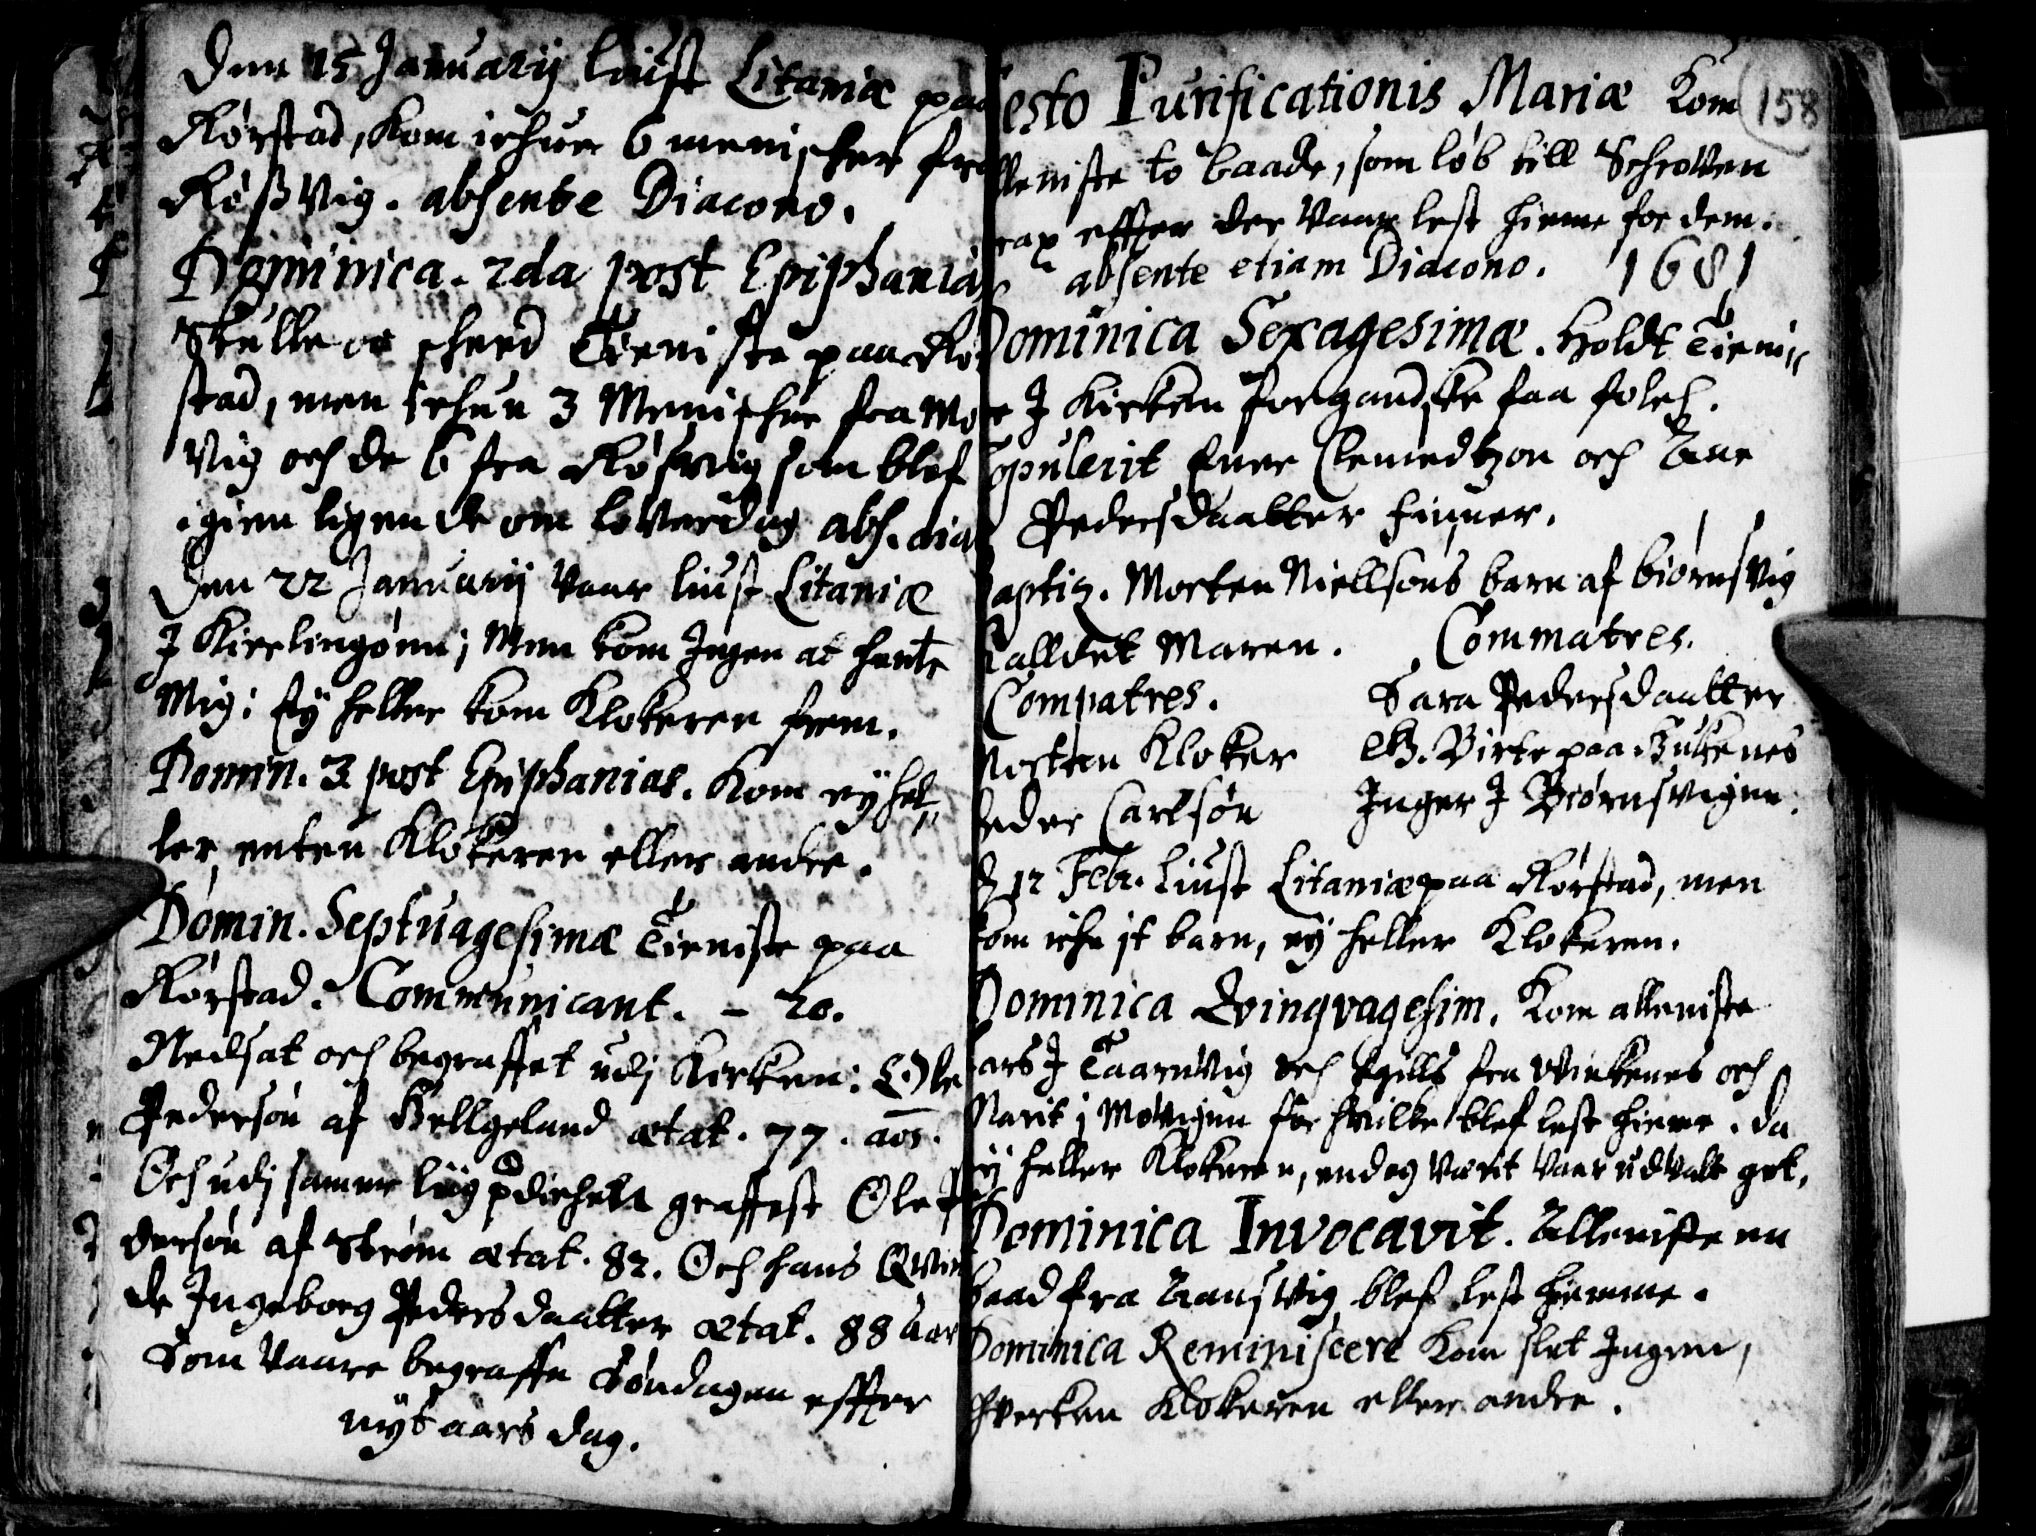 Den 15 Januarij liust Litaniæ paa
Rørstad, kom ichun 6 menischer fra
Røßvig. absente Diacono.
Dominica. 2da post Epiphanias
Skulle ve scheed Tieniste paa Rør
stad, men ichun 3 Menischer fra Mo
vig och de 6 fra Røsvig som blef
igien ligende om Løverdag abs. dia
Den 22 Januarij vaar liust Litaniæ
J Kierlingøen; Men kom Ingen at hente
Mig: Ey heller kom Klokeren frem.
Domin. 3 post Epiphanias. Kom ey hel„
ler enten Klokeren eller andre.
Domin. Septuagesimæ Tieniste paa
Rørstad. Communicant. – 20.
Nedsat och begraffet udj Kirken: Ole
Pedersøn af Hellgeland ætat. 77. aōs.
Och udj samme liig graffest Ole Pe
dersøn af Strøm ætat. 82. Och hans Qvin
de Ingeborg Pedersdaatter ætat. 88 aar
Som vaare begraffne Søndagen effter
nyt aars dag.
Festo Purificationis Mariæ Kom 158
alleniste to baade, som løb till Schroven
strax effter der vaar lest hieme for dem.
absente etiam Diacono. 1681
Dominica Sexagesimæ. Holdt Tienis
te J Kirken for gandske faa folch.
Copulerit Ener Clemedtzon och Ane
Pedersdaatter Finner.
Baptiz. Morten Niellsøns barn af biørnsvig
Kalldet Maren. Commatres.
Compatres. Sara Pedersdaatter
Morten Kloker Birte paa Husenes
Peder Carlsøn Inger J Biørnsvigen.
D 12 Febr. liust Litaniæ paa Rørstad, men
kom iche it barn, ey heller Klokeren.
Dominica Qvingvagesim. Kom alleniste
Lars J Taarnvig och Egills fra Vinkenes och
Marit j Møvigen for hvilke blef lest hieme. da
ey heller Klokeren, endog værit vaar udvalt get.
Dominica Invocavit. Alleniste en
baad fra Aansvig blef lest hiemme.
Dominica Reminiscere Kom slet Ingen,
hverken Klokeren eller andre.